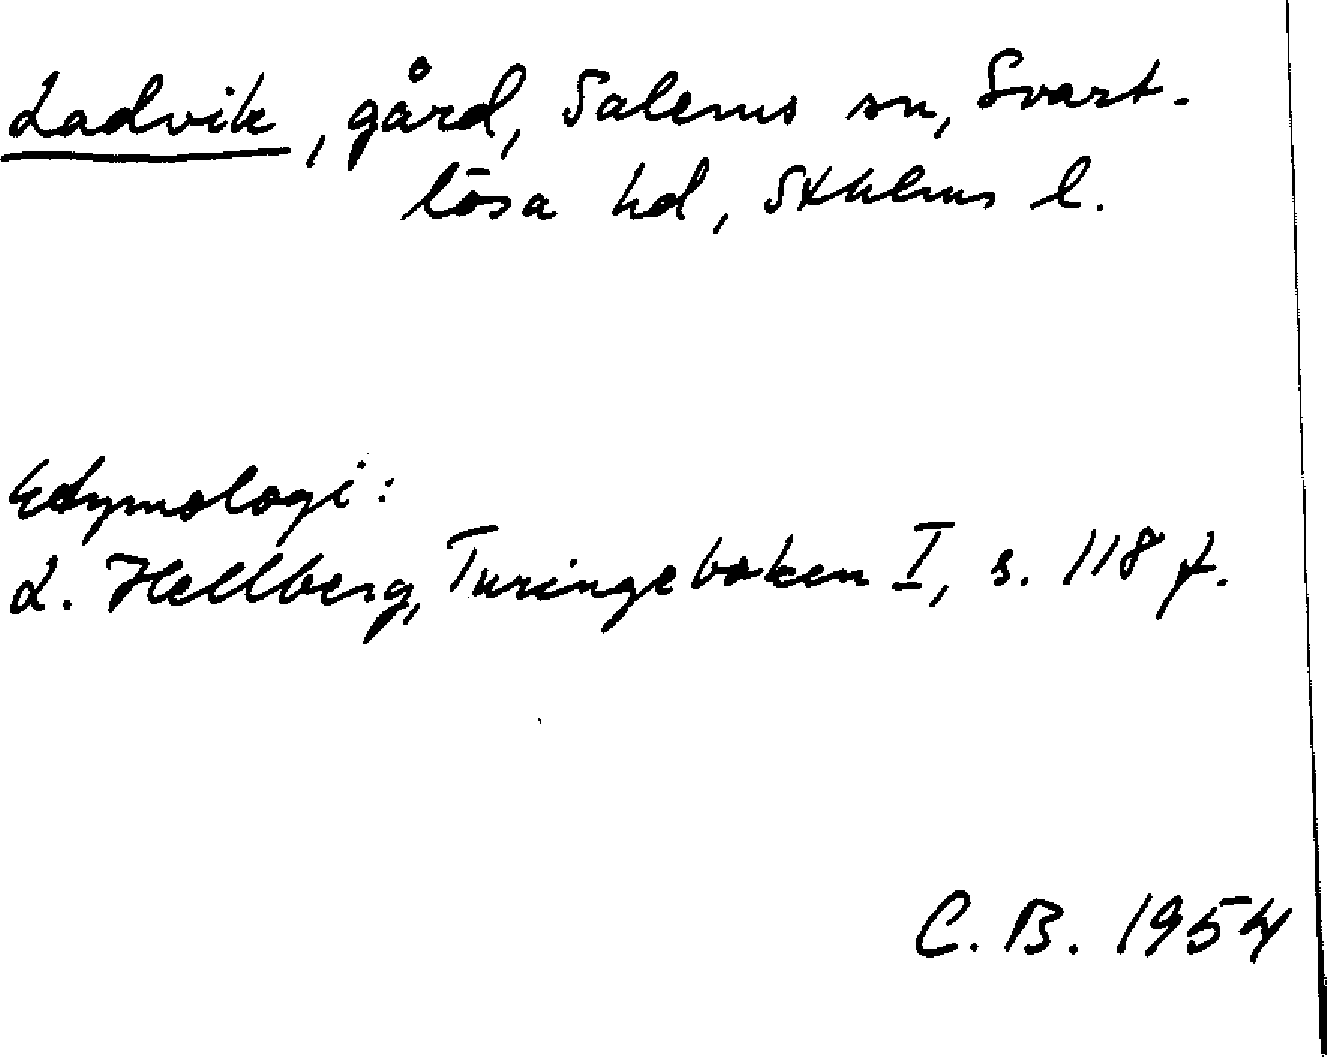 Ladvik, gård, Salems sn, Svart-
lösa hd, Sthlms l.
Etymologi:
L. Hellberg, Turingeboken I, s. 118 f.
C. B. 1954